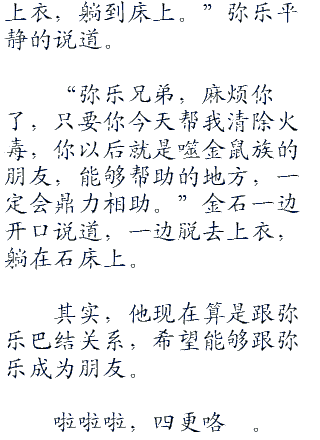 上衣，躺到床上。”弥乐平
静的说道。
“弥乐兄弟，麻烦你
了，只要你今天帮我清除火
毒，你以后就是噬金鼠族的
朋友，能够帮助的地方，一
定会鼎力相助。”金石一边
开口说道，一边脱去上衣，
躺在石床上。
其实，他现在算是跟弥
乐巴结关系，希望能够跟弥
乐成为朋友。
啦啦啦，四更咯 。